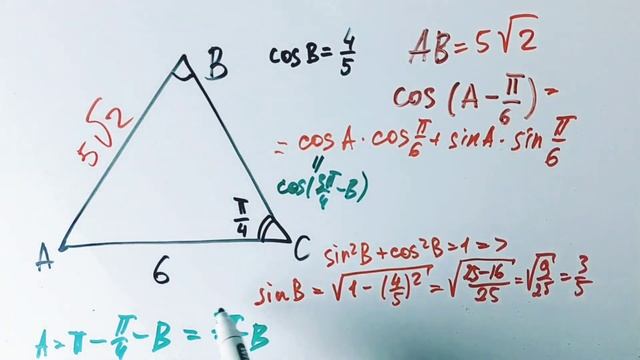 cosB = 4/5
AB = 5√2
B
5√2
cos(A - π/6) =
= cosA · cos π/6 + sinA · sin π/6
"
cos(3π/4 - B)
π/4
A
C
6
sin²B + cos²B = 1 =>
sinB = √(1 - (4/5)²) = √((25-16)/25) = √(9/25) = 3/5
A = π - π/4 - B = - B